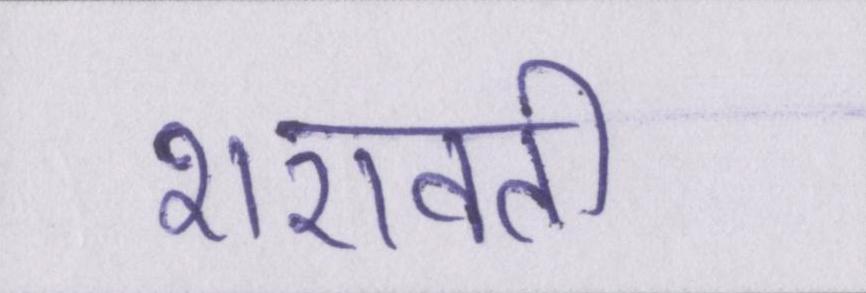 शरावती